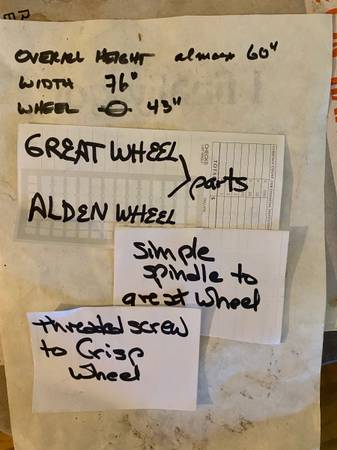 OVERALL HEIGHT almost 60"
WIDTH 76"
WHEEL 43"
GREAT WHEEL
parts
ALDEN WHEEL
simple
spindle to
great wheel
threaded screw
to Crisp
Wheel